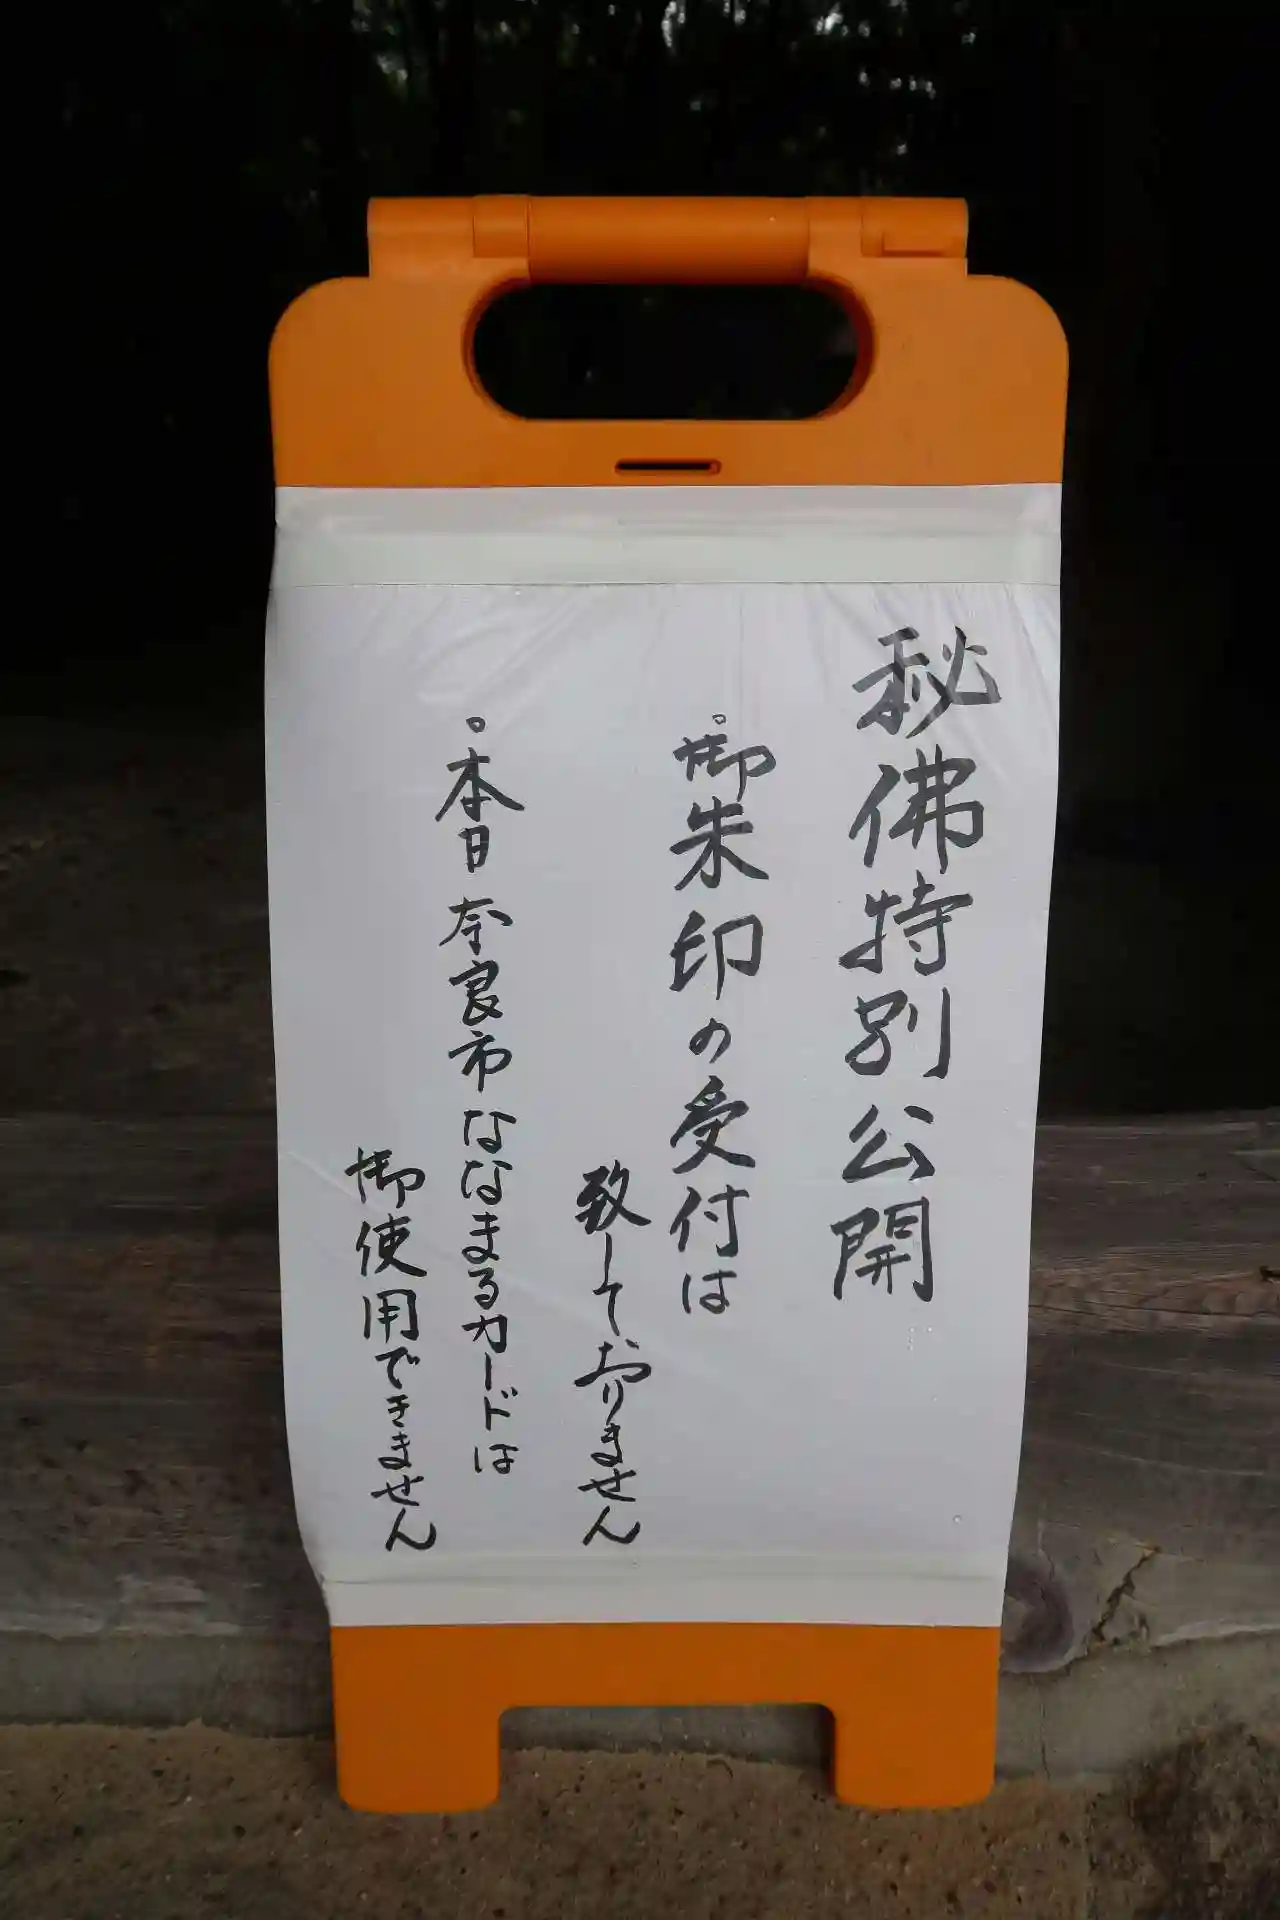 秘佛特別公開
。御朱印の受付は
致しておりません
。本日奈良市ななまるカードは
御使用できません